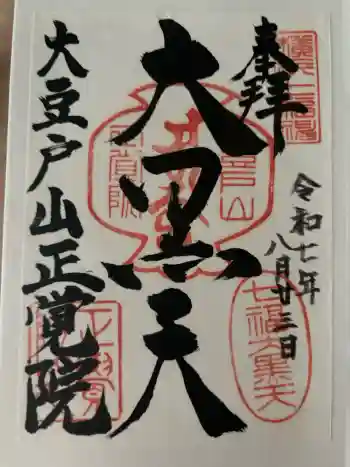 奉拝
令和七年
八月廿三日
大黒天
大豆戸山正覚院
七福大黒天